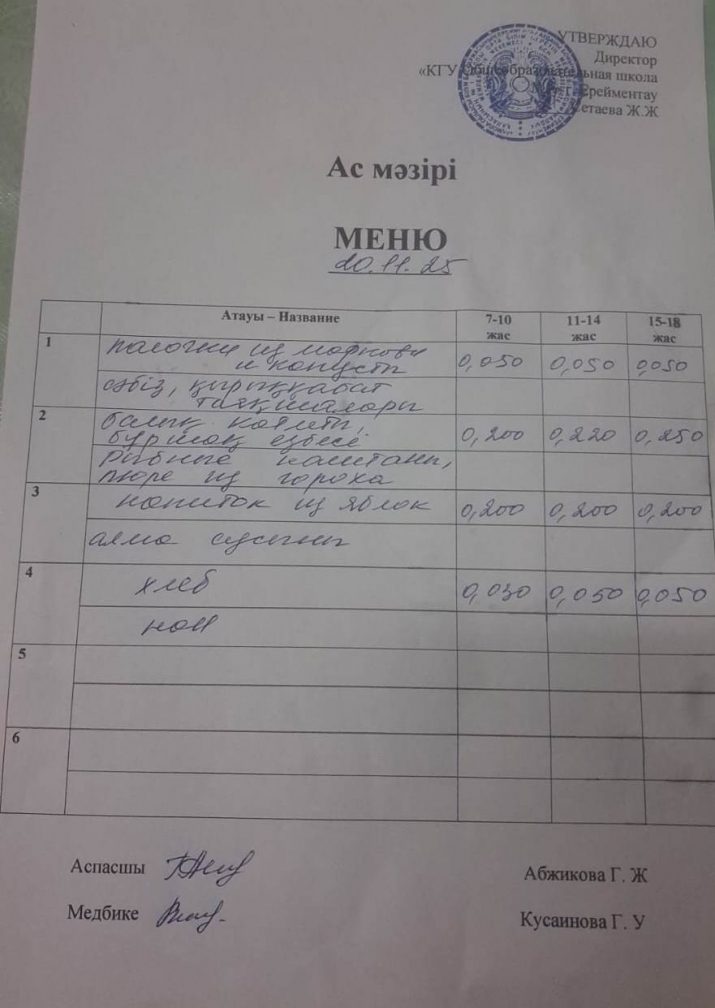 УТВЕРЖДАЮ
Директор
«КГУ Общеобразовательная школа
г. Ерейментау
Сетаева Ж.Ж
Ас мәзірі
МЕНЮ
20.11.25
Атауы – Название 7-10 жас 11-14 жас 15-18 жас
1 палочки из моркови
и капусты 0,050 0,050 0,050
сәбіз, қырыққабат
таяқшалары
2 балық котлеті,
бұршақ езбесі 0,200 0,220 0,250
рыбные каштаны,
пюре из гороха
3 напиток из яблок 0,200 0,200 0,200
алма сусыны
4 хлеб 0,030 0,050 0,050
нан
5
6
Аспасшы Абжикова Г. Ж
Медбике Кусаинова Г. У